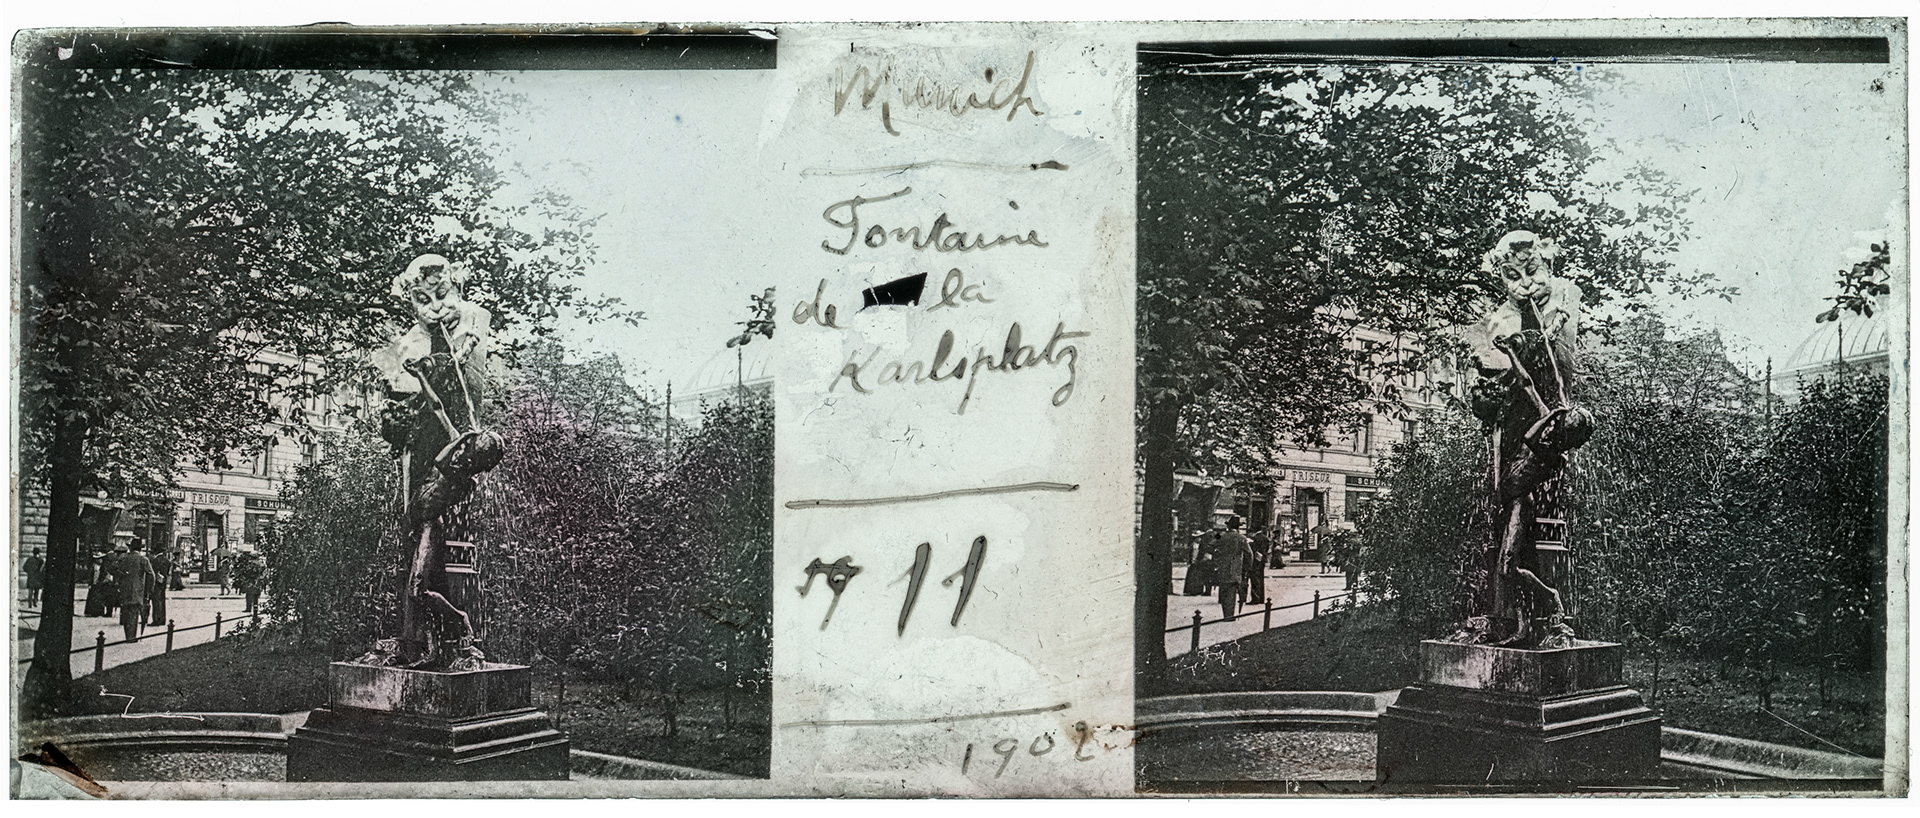 Munich
Fontaine
de la
Karlsplatz
11
1902
FRISEUR
SCHUH
FRISEUR
SCHUH